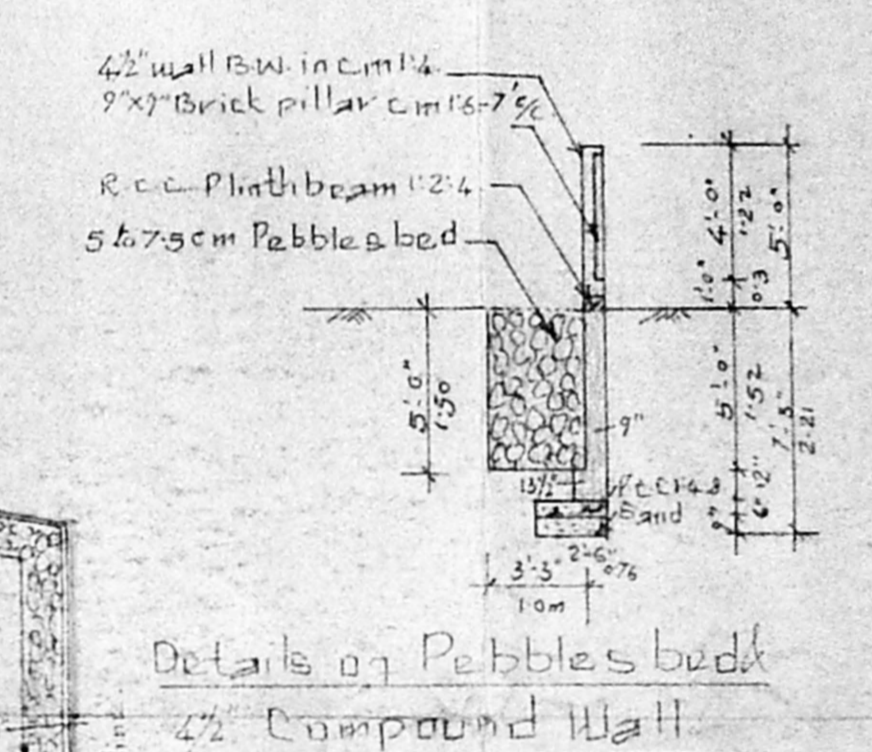 4½" wall B.W. in cm 1:4
9"x9" Brick pillar cm 1:6-7' c/c
R.c.c Plinth beam 1:2:4
5 to 7.5cm Pebbles bed
4'-0"
1.22
5'-0"
1'-0"
0.3
5'-0"
1.50
5'-0"
1.52
7'-3"
2.21
9"
13½"
P.C.C 1:4:8
Sand
12"
6"
9"
2'-6"
0.76
3'-3"
1.0m
Details of Pebbles bed &
4½" Compound Wall